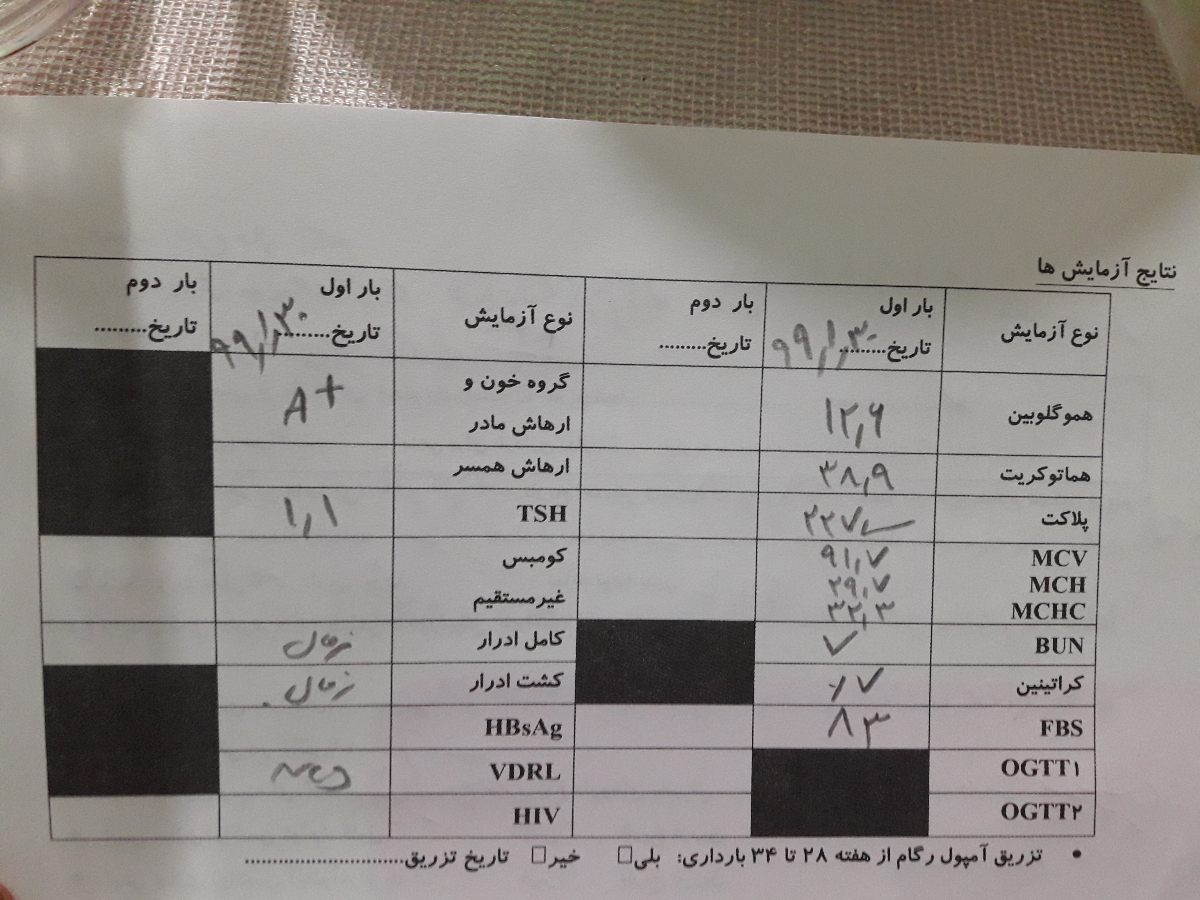 نتایج آزمایش ها
نوع آزمایش بار اول تاریخ......... ۹۹,۱,۳۰ بار دوم تاریخ......... نوع آزمایش بار اول تاریخ......... ۹۹,۱,۳۰ بار دوم تاریخ.........
هموگلوبین ۱۲,۶ گروه خون و ارهاش مادر A+
هماتوکریت ۳۸,۹ ارهاش همسر
پلاکت ۲۲۷ TSH ۱,۱
MCV ۹۱,۷ کومبس غیرمستقیم
MCH ۲۹,۷
MCHC ۳۲,۳
BUN ۷ کامل ادرار نرمال
کراتینین ,۷ کشت ادرار نرمال
FBS ۸۳ HBsAg
OGTT۱ VDRL neg
OGTT۲ HIV
• تزریق آمپول رگام از هفته ۲۸ تا ۳۴ بارداری: بلی□ خیر□ تاریخ تزریق.............................